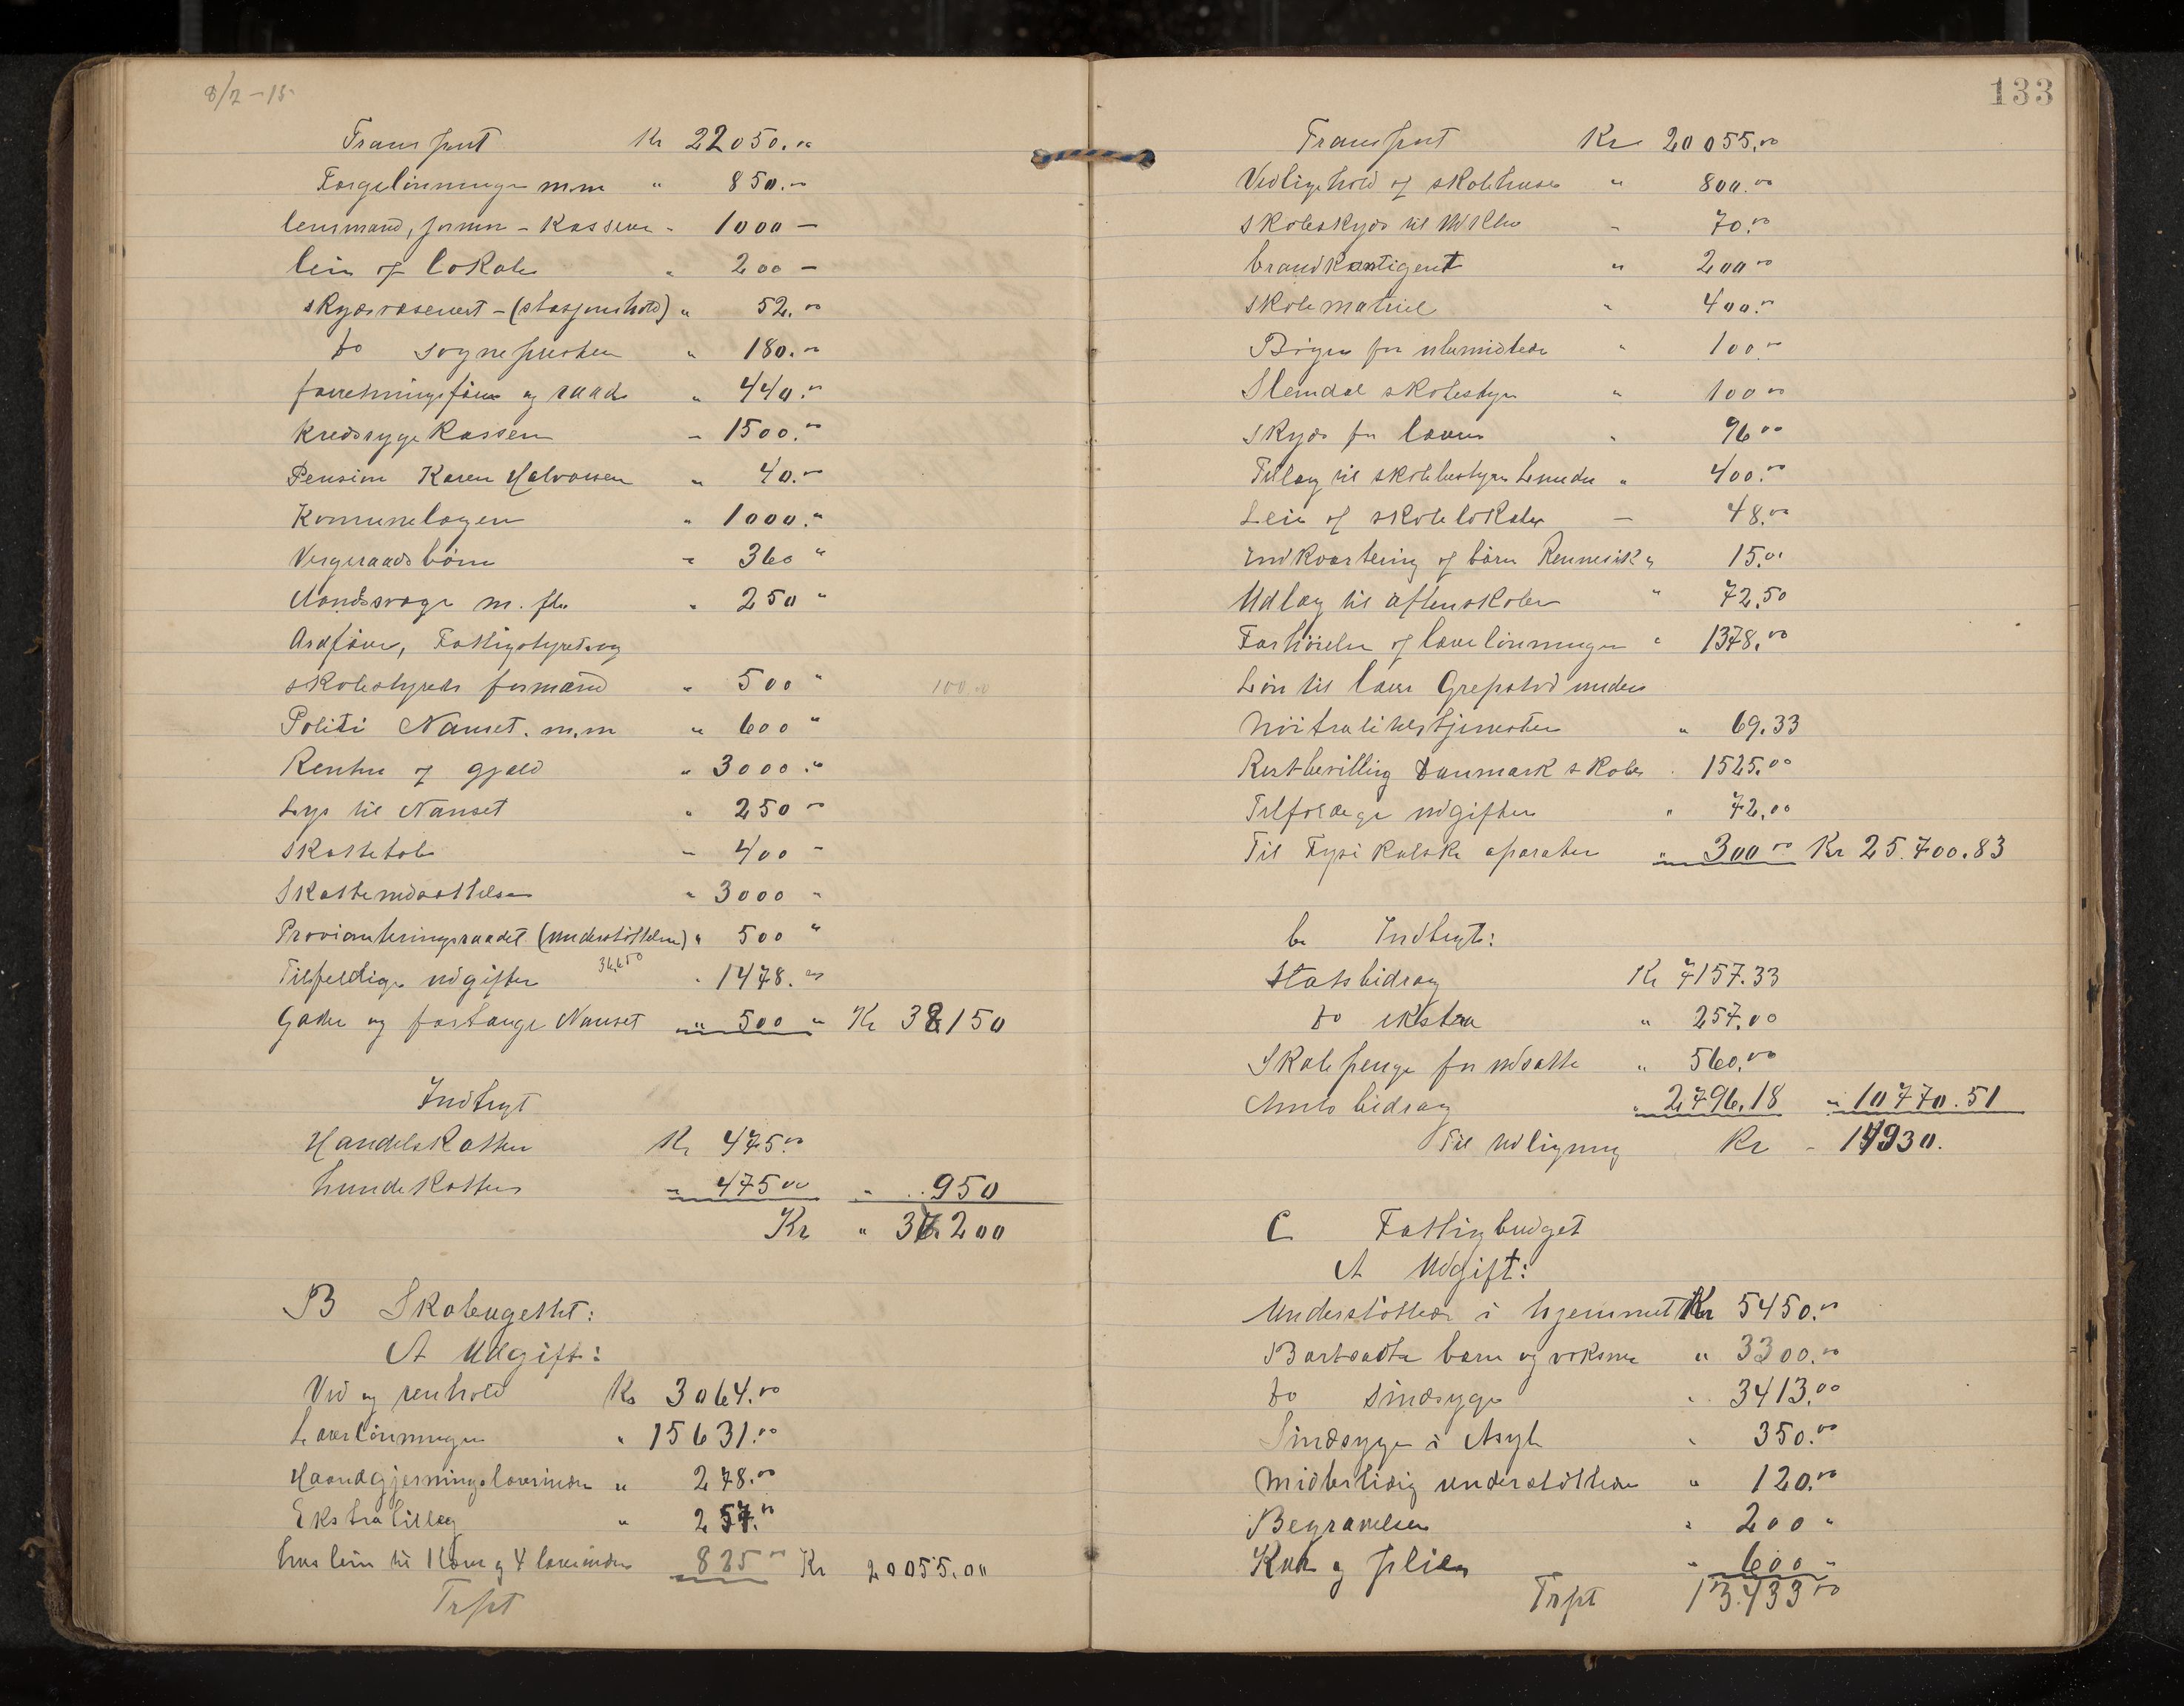 8/2 - 15
Transport Kr 22050.00
Forgelönninger m.m " 850.00
lensmand, formn - Kasserer - 1000 -
leie af lokale " 200 -
skydsvæsenet - (stasjonshold) " 52.00
do sognepresten " 180.00
forretningsförer og raads " 440.00
Kredssygekassen - 1500.00
Pension Karen Halvorsen " 40.00
Komunelægen " 1000."
Vergeraadsbörn - 360 "
Aandssvage m. fl. " 250 "
Ordförer, Fattigstyret og
skolestyrets formand " 500 " 100.00
Politi Nanset. m.m " 600 "
Renter af gjæld " 3000."
Lys til Nanset " 250 00
Skattetab - 400 -
Skatteudsættelse " 3000 "
Provianteringsraadet (understöttelse) " 500 "
Tilfeldige udgifter 36650 " 1478.00
Gader og fortauge Nanset " 500 " Kr 38150
Indtegt
Handelskatten Kr 475.00
hundeskatten " 475 00 " 950
Kr " 37200
B Skolebugettet:
A Udgift:
Ved og renhold Kr 3064.00
Lærerlönninger " 15631.00
Haandgjerningslærerinder " 278.00
Ekstratillæg " 257.00
husleie til 1 lærer og 4 lærerinder 825 00 Kr 20055.00
Trpt
133
Transport Kr 20055.00
Vedligehold af skolehuse " 800.00
skoleskyds til 70.00
brandkontigent " 200 00
skolemateriel " 400.00
Böger for ubemidlede " 100.00
Slemdal skolestyre " 100 00
Skyds for lærer " 96 00
Tillæg til skolebestyrer " 400.00
Leie af skolelokaler - 48.00
Indkvartering af börn " 15.00
Udlæg til aftenskoler " 72.50
Forhöielse af lærerlönninger " 1378.00
Lön til lærer Grepstad under
nöitralitetstjenesten " 69.33
Restbevilling Danmark skole . 1525.00
Tilfældige udgifter " 72.00
Til Fysikalske aparater " 300 00 Kr 25.700.83
b. Indtegt:
Statsbidrag Kr 7157.33
do ekstra " 257.00
Skolepenge for udsatte " 560.00
Amtsbidrag " 2796.18 " 10770.51
Til udligning Kr - 14930.
C Fattigbudget
A Udgift:
Understöttede i hjemmet Kr 5450.00
Bortsadte barn og voksne " 3300.00
do sindsyge " 3413.00
Sindsyge i Asyl " 350.00
Midlertidig understöttede " 120.00
Begravelser " 200 "
Kur og pleie " 600 "
Trpt 13.433 00